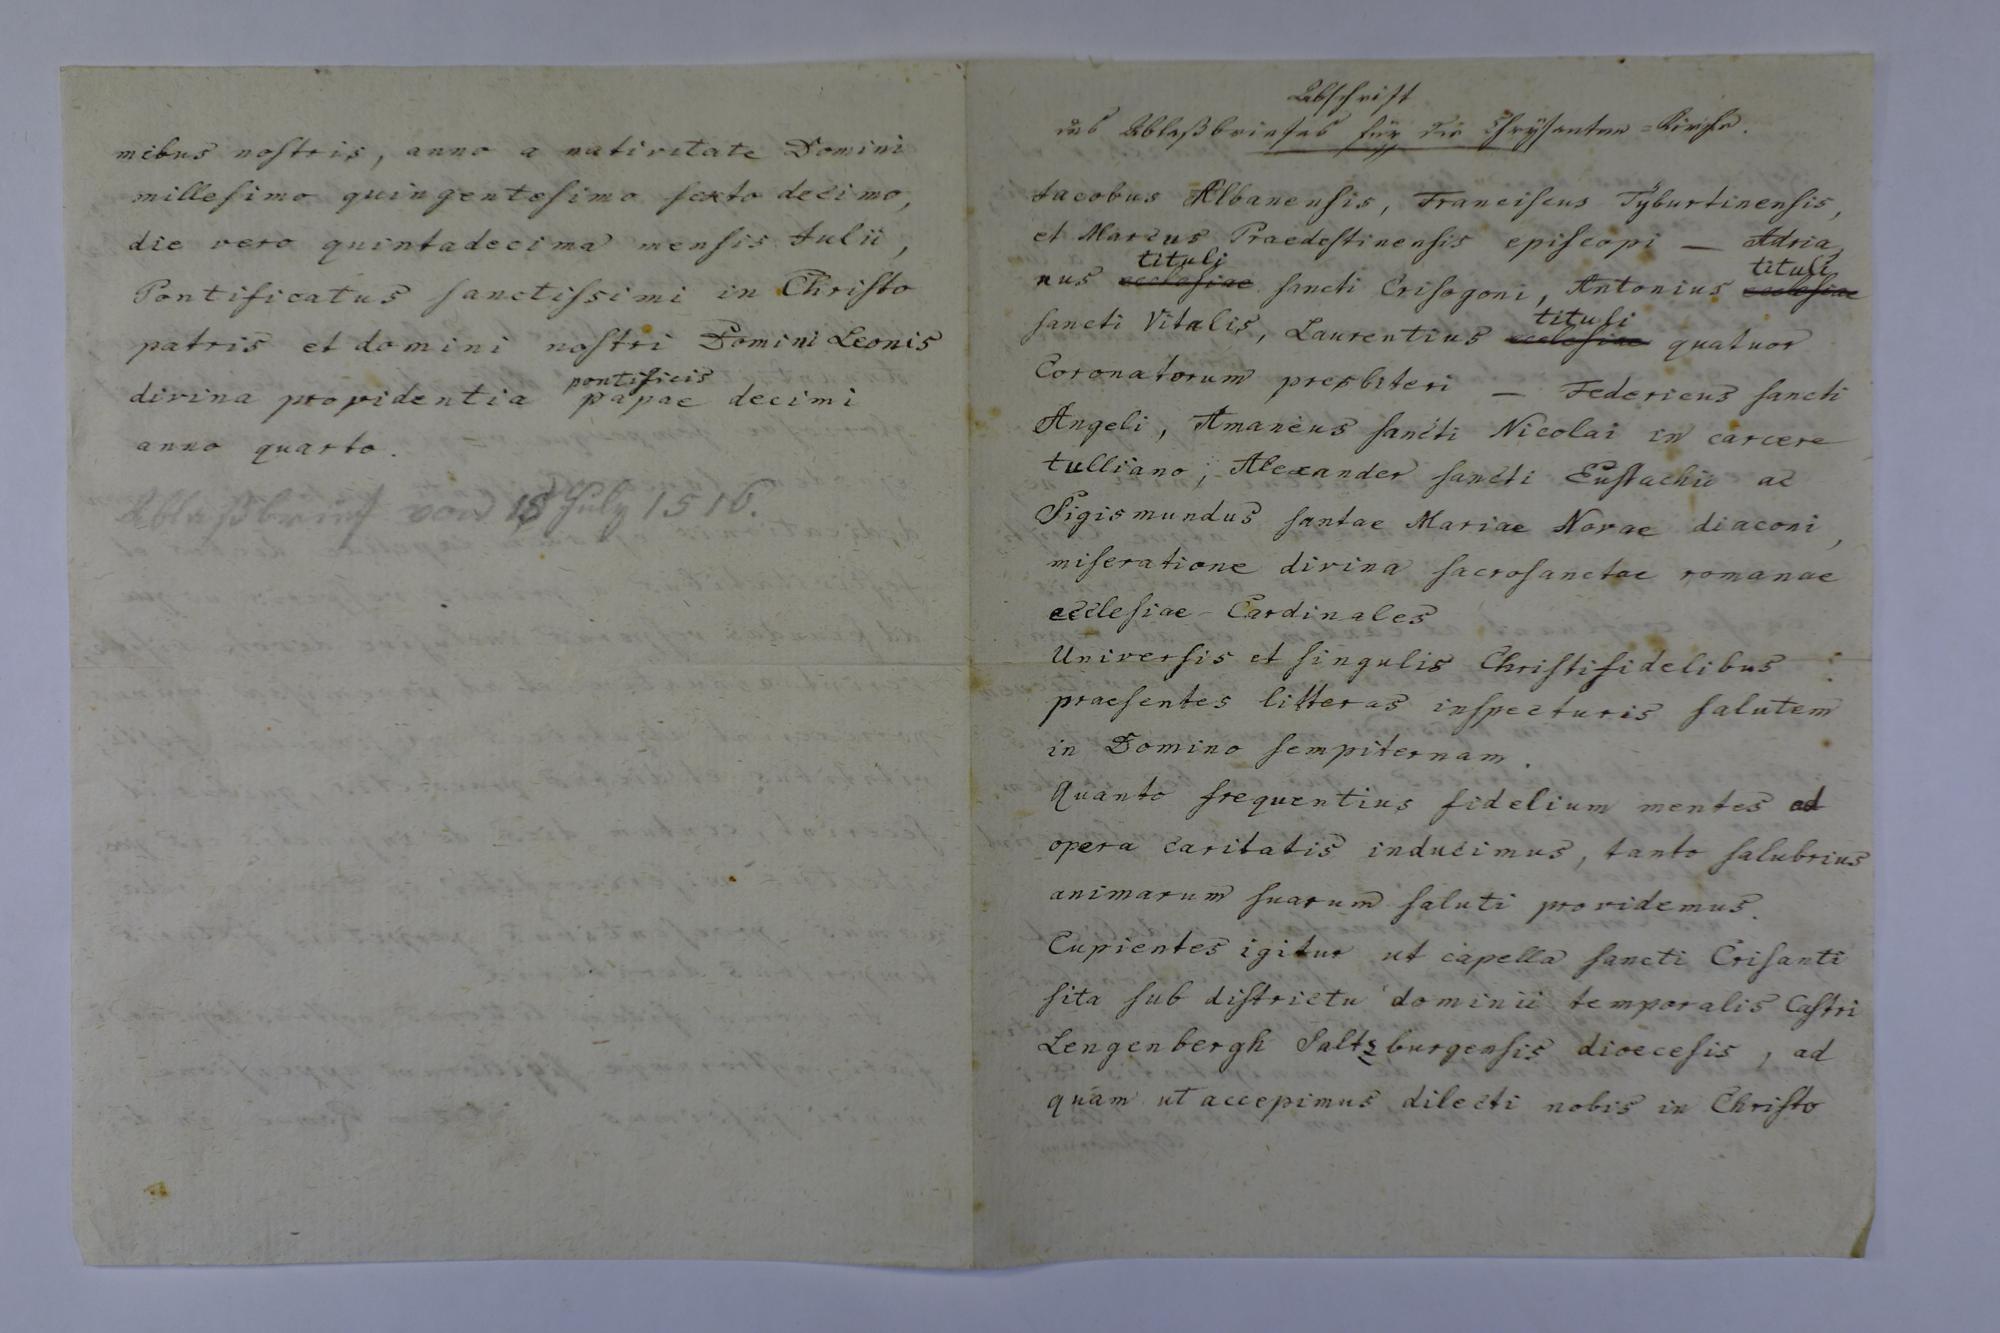 mibus nostris, anno a nativitate Domini
millesimo quingentesimo sexto decimo,
die vero quintadecima mensis Julii,
Pontificatus sanctissimi in Christo
patris et domini nostri Domini Leonis
pontificis
divina providentia papae decimi
anno quarto.
Ablaßbrief von 15 July 1516.
Abschrift
des Ablaßbriefes für die Chrÿsanten=Kirche.
Jacobus Albanensis, Franciscus Tÿburtinensis,
et Marcus Praedestinensis episcopi — Adria
tituli tituli
nus ecclesiae sancti Crisogoni, Antonius ecclesiae
tituli
sancti Vitalis, Laurentius ecclesiae quatuor
Coronatorum presbiteri — Federicus sancti
Angeli, Amaneus sancti Nicolai in carcere
tulliano, Alexander sancti Eustachii ac
Sigismundus santae Mariae Novae diaconi,
miseratione divina sacrosanctae romanae
ecclesiae Cardinales
Universis et singulis Christifidelibus
praesentes litteras inspecturis salutem
in Domino sempiternam.
Quanto frequentius fidelium mentes ad
opera caritatis inducimus, tanto salubrius
animarum suarum saluti providemus.
Cupientes igitur ut capella sancti Crisanti
sita sub districtu dominii temporalis Castri
Lengenbergh Saltzburgensis dioecesis, ad
quam ut accepimus dilecti nobis in Christo